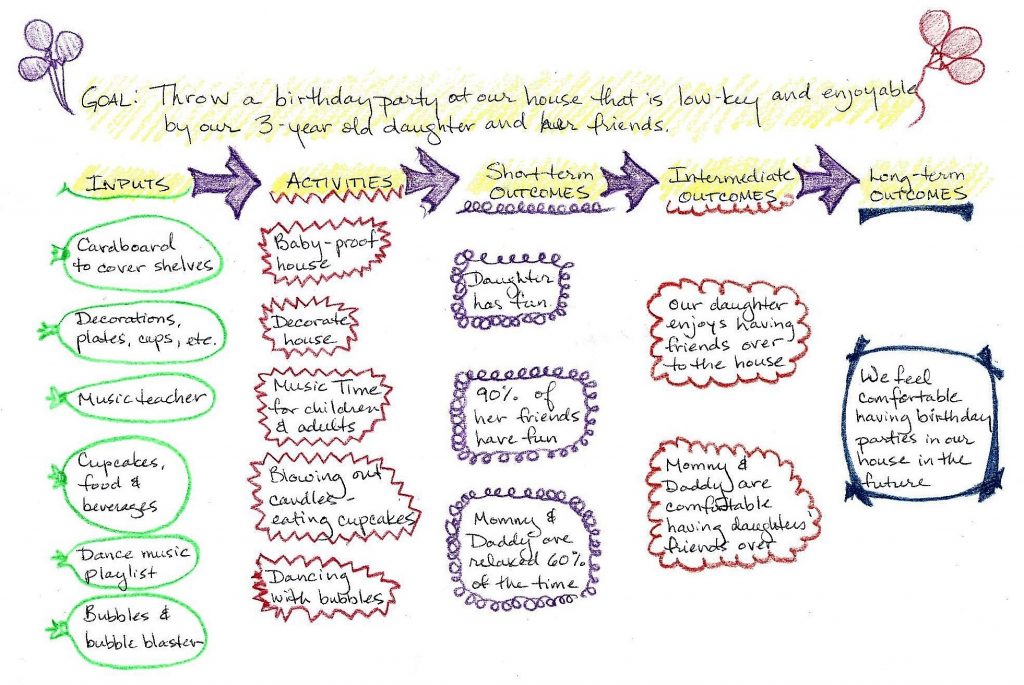 GOAL: Throw a birthday party at our house that is low-key and enjoyable
by our 3-year old daughter and her friends.
INPUTS
ACTIVITIES
Short-term
OUTCOMES
Intermediate
OUTCOMES
Long-term
OUTCOMES
Cardboard
to cover shelves
Decorations,
plates, cups, etc.
Music teacher
Cupcakes,
food &
beverages
Dance music
playlist
Bubbles &
bubble blaster
Baby-proof
house
Decorate
house
Music Time
for children
& adults
Blowing out
candles-
eating cupcakes
Dancing
with bubbles
Daughter
has fun.
90% of
her friends
have fun
Mommy &
Daddy are
relaxed 60%
of the time
Our daughter
enjoys having
friends over
to the house
Mommy &
Daddy are
comfortable
having daughters'
friends over
We feel
comfortable
having birthday
parties in our
house in the
future